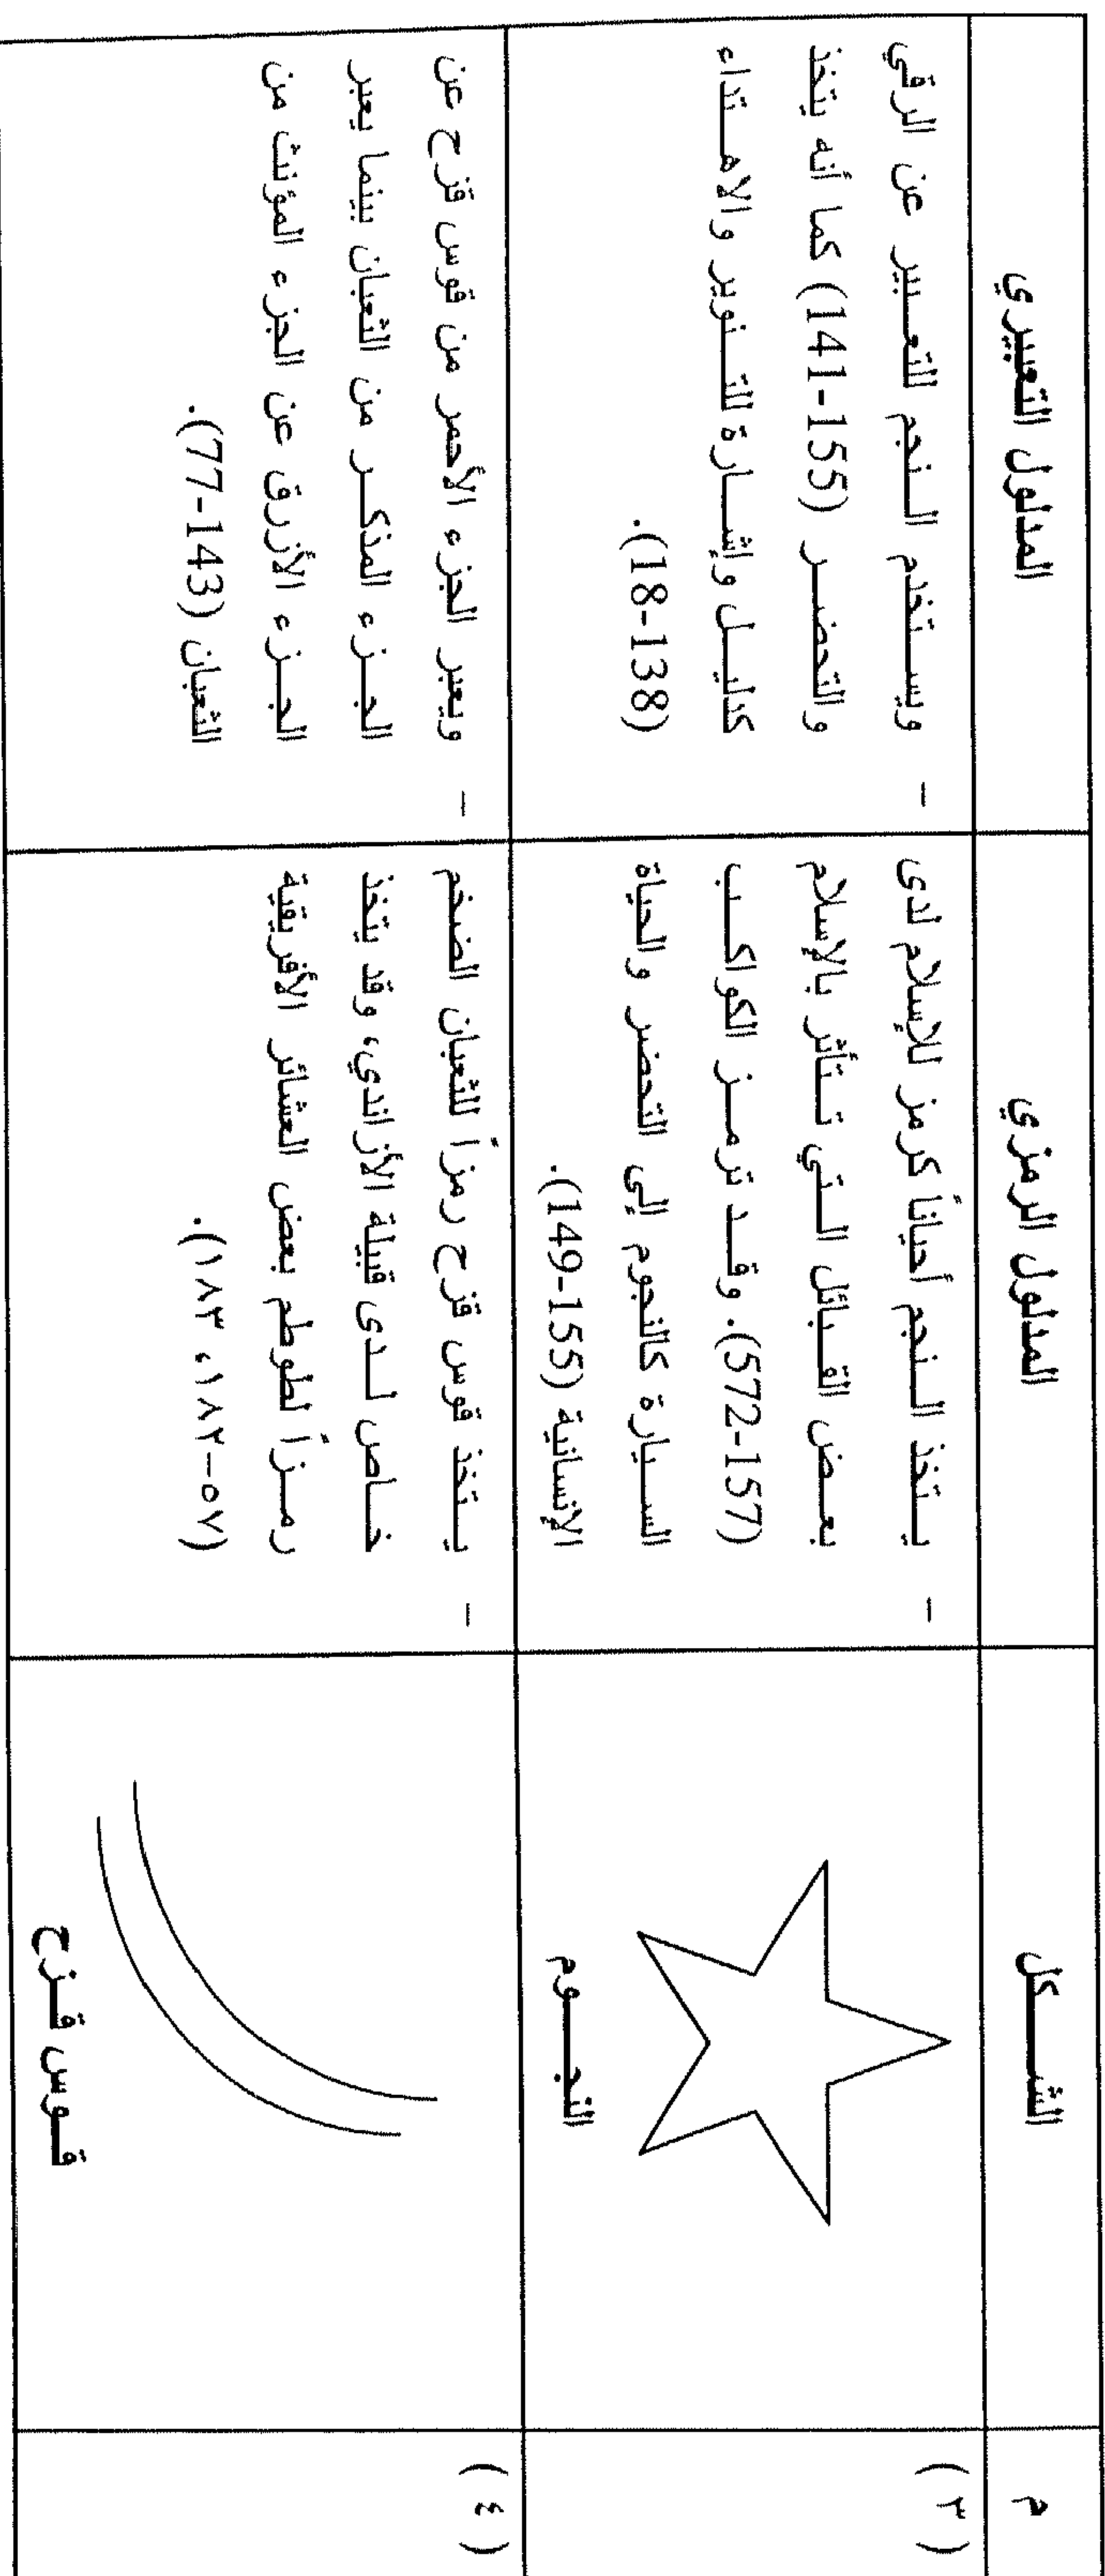 م
الشـــكل
المدلول الرمزي
المدلول التعبيري
(٣)
النجـــوم
- يـتخذ الـنجم أحياناً كرمز للإسلام لدى
بعـض القـبائل الـتي تـتأثر بالإسلام
(572-157). وقـد ترمـز الكواكـب
السـيارة كالنجوم إلى التحضر والحياة
الإنسانية (155-149).
- ويسـتخدم الـنجم للتعـبير عن الرقي
والتحضـر (155-141) كما أنه يتخذ
كدليـل وإشـارة للتـنوير والاهـتداء
(18-138).
(٤)
قـــوس قـــزح
- يـتخذ قوس قزح رمزاً للثعبان الضخم
خـاص لـدى قبيلة الأزاندي، وقد يتخذ
رمـزاً لطوطم بعض العشائر الأفريقية
(٥٧-١٨٢، ١٨٣).
- ويعبر الجزء الأحمر من قوس قزح عن
الجـزء المذكـر من الثعبان بينما يعبر
الجـزء الأزرق عن الجزء المؤنث من
الثعبان (143-77).